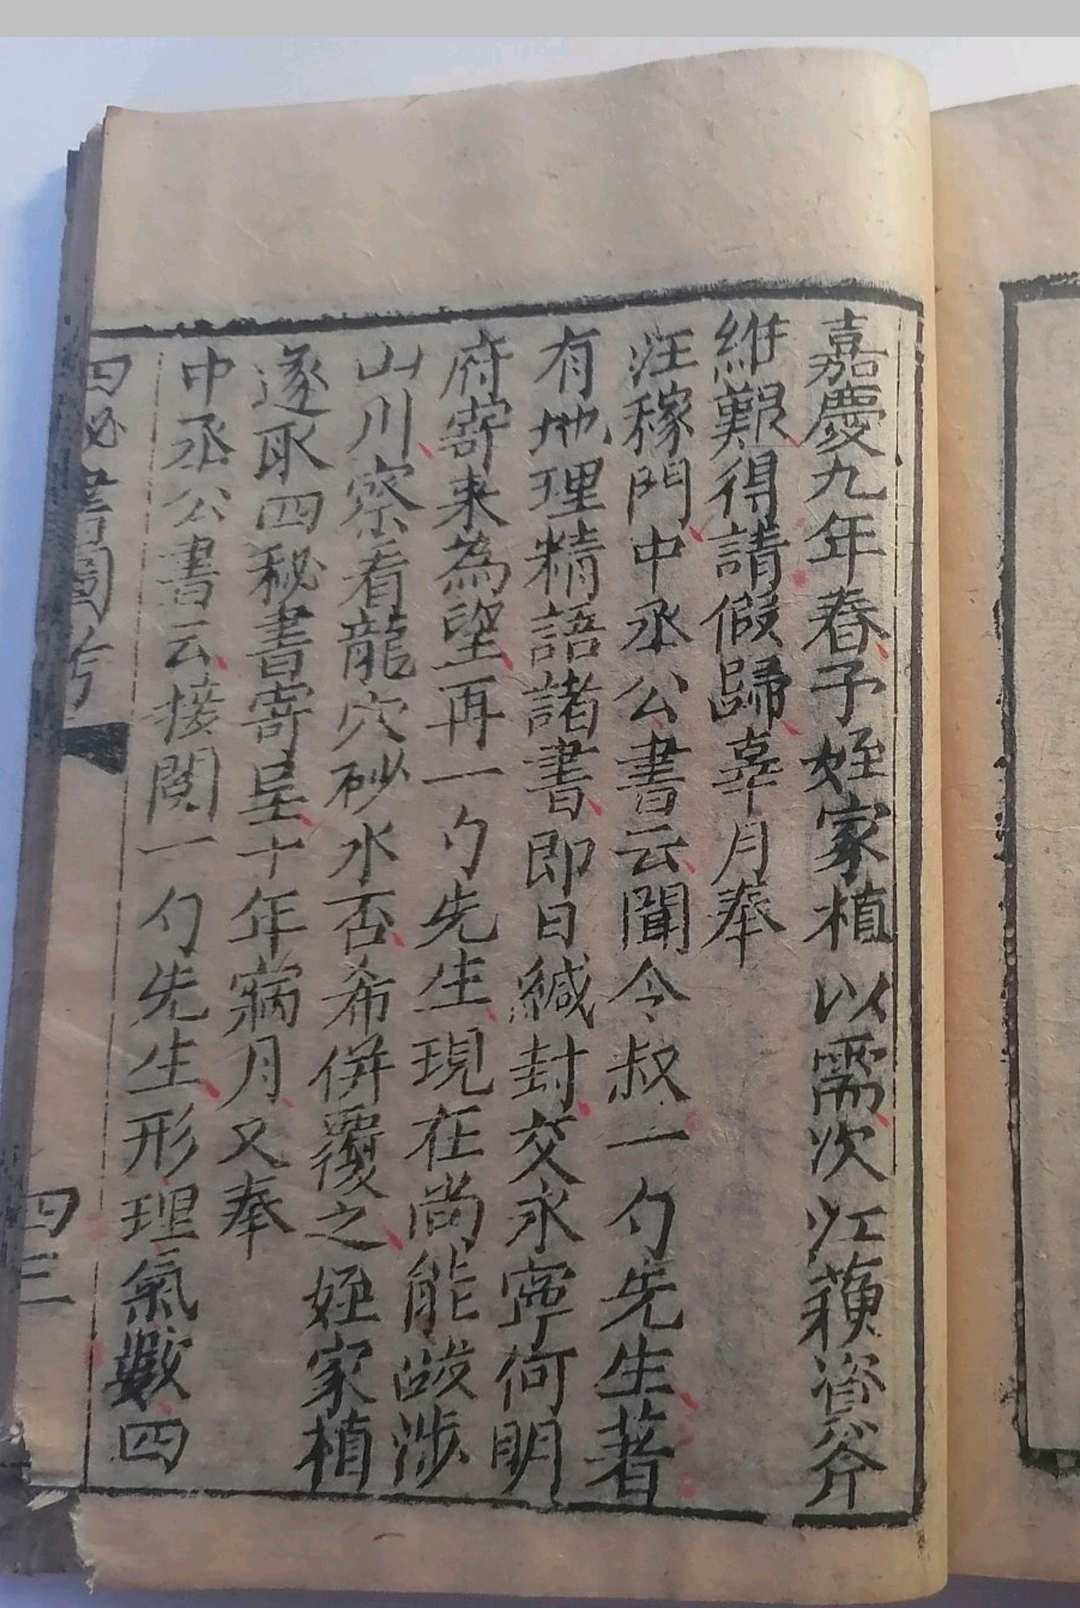 嘉慶九年春子姪家植以需次江蘓資斧
維艱得請假歸辜月奉
汪稼門中丞公書云聞令叔一勺先生著
有地理精語諸書即日緘封交永寧何明
府寄来為望再一勺先生現在尚能跋涉
山川察看龍穴砂水否希併覆之姪家植
遂取四秘書寄呈十年寎月又奉
中丞公書云接閱一勺先生形理氣數四
四秘書圖考
四三